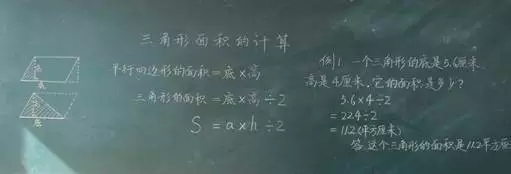 三角形面积的计算
平行四边形的面积=底×高
三角形的面积=底×高÷2
S=a×h÷2
例1 一个三角形的底是5.6厘米,
高是4厘米。它的面积是多少?
5.6×4÷2
=22.4÷2
=11.2(平方厘米)
答:这个三角形的面积是11.2平方厘